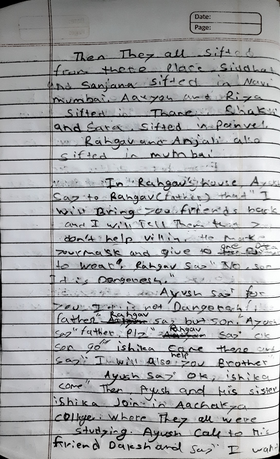 Date:
Page:
Then They all sifted
from there place Siddhat
and Sanjana sifted in Navi
mumbai. Aayan and Riya
sifted in Thane, Shakti
and Sara, sifted in panvel
Rahgav and Anjali also
sifted in mumbai
In Rahgav's house, Ayush
Say to Rahgav (father) that "I
will Bring you friends back
and I will Tell Them to
don't help villin,
your mask and give to
to wear". Rahgav say "No, son
It is Dangeresh,"
Ayush say for
you It is not Dangeresh,
father" Rahgav say but son. Ayush
say "father plz" Rahgav say ok
son go" ishika came there and
say "I will also help you Brother
Ayush say ok, ishika
come" Then Ayush and His sister
ishika Join in Aachakya
college. where They all were
studying. Ayush call to His
friend Daksh and say I want